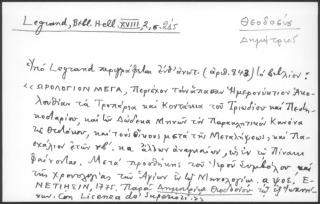 Legrand, Bibl. Hell. XVIII, 2, σ. 215
Θεοδοσίου
Δημήτριος
Ὑπὸ Legrand περιγράφεται ἐνθ' ἀνωτ. (ἀριθ. 843) τὸ βιβλίον:
«ΩΡΟΛΟΓΙΟΝ ΜΕΓΑ, Περιέχον τὴν ἅπασαν Ἡμερονύκτιον Ἀκο-
λουθίαν τὰ Τροπάρια καὶ Κοντάκια τοῦ Τριωδίου καὶ Πεντη-
κοσταρίου, καὶ τῶν Δώδεκα Μηνῶν τὸν Παρακλητικὸν Κανόνα
τῆς Θεοτόκου, καὶ τοὺς Οἴκους μετὰ τῆς Μεταλήψεως, καὶ Πα-
σχάλιον ἐτῶν καὶ ἄλλων ἀναγκαίων, ὡς ἐν τῷ Πίνακι
φαίνονται. Μετὰ προσθήκης τοῦ Ἱεροῦ Συμβόλου καὶ
τῆς Χρονολογίας τῶν Ἁγίων ἐν τῷ Μηνολογίῳ. ͵αψοε. Ε-
ΝΕΤΙΗΣΙΝ, 1775. Παρὰ Δημητρίῳ Θεοδοσίου τῷ ἐξ Ἰωαννί-
νων. Con Licenza de' Superiori.»